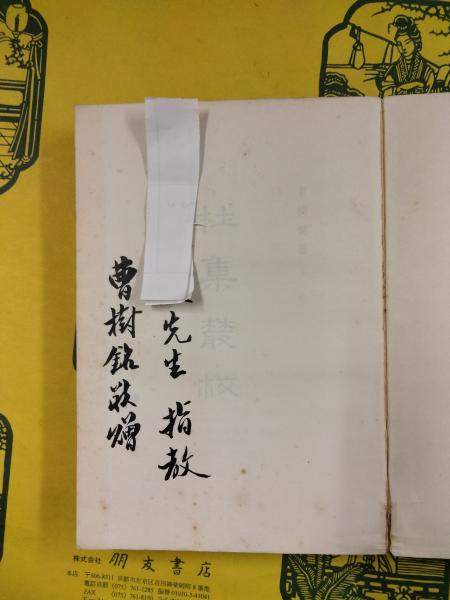 先生 指教
曹樹銘敬贈
杜集叢校
株式会社 朋友書店
本店 〒606-8311 京都市左京区吉田神楽岡町8番地
電話 (075) 761-1285
FAX (075) 761-8150